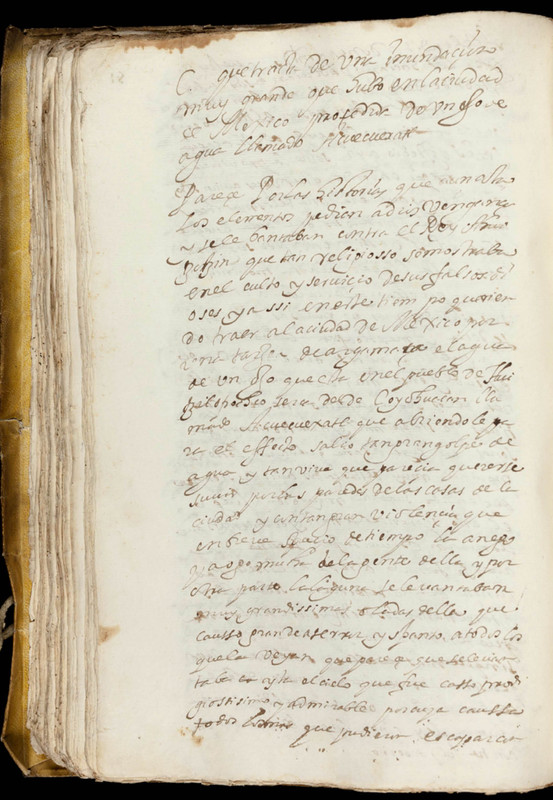 C. que trata de Una Inundacion
muy grande que Hubo en la ciudad
de Mexico prosedida de Un ojo de
agua llamado Acuecuexatl
Pareçe Por las historias que aun asta
Los elementos pedian a dios Vengança
y se le bantaban contra el Rey
que tan religiosso se mostraba
en el culto y servicio de sus falsos di
oses y assi en este tiempo querien
do traer a la ciudad de Mexico por
una de argamasa el agua
de un ojo que esta en el pueblo de Hui
desde Coyohuacan lla
mado Acuecuexatl que abriendole pa
ra el effecto salio tan gran golpe de
agua y tan viva que parecia quererse
suvir por las paredes de las casas de la
ciudad y con tan gran violencia que
en breve espacio de tiempo la anego
y aogo mucha de la gente della y por
otra parte la laguna se levantaban
muy grandissimas oladas della que
causso grande aterror y espanto a todos los
que la veyan que pareçe que se levan
taba asta el cielo que fue casso prodi
giosissimo y admirable por cuya caussa
todos los que pudieron escaparon